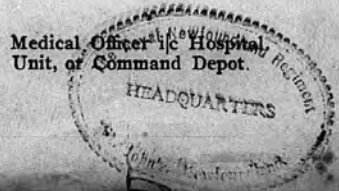 Medical Officer i/c Hospital,
Unit, or Command Depot.
Royal Newfoundland Regiment
HEADQUARTERS
St. John's, Newfoundland